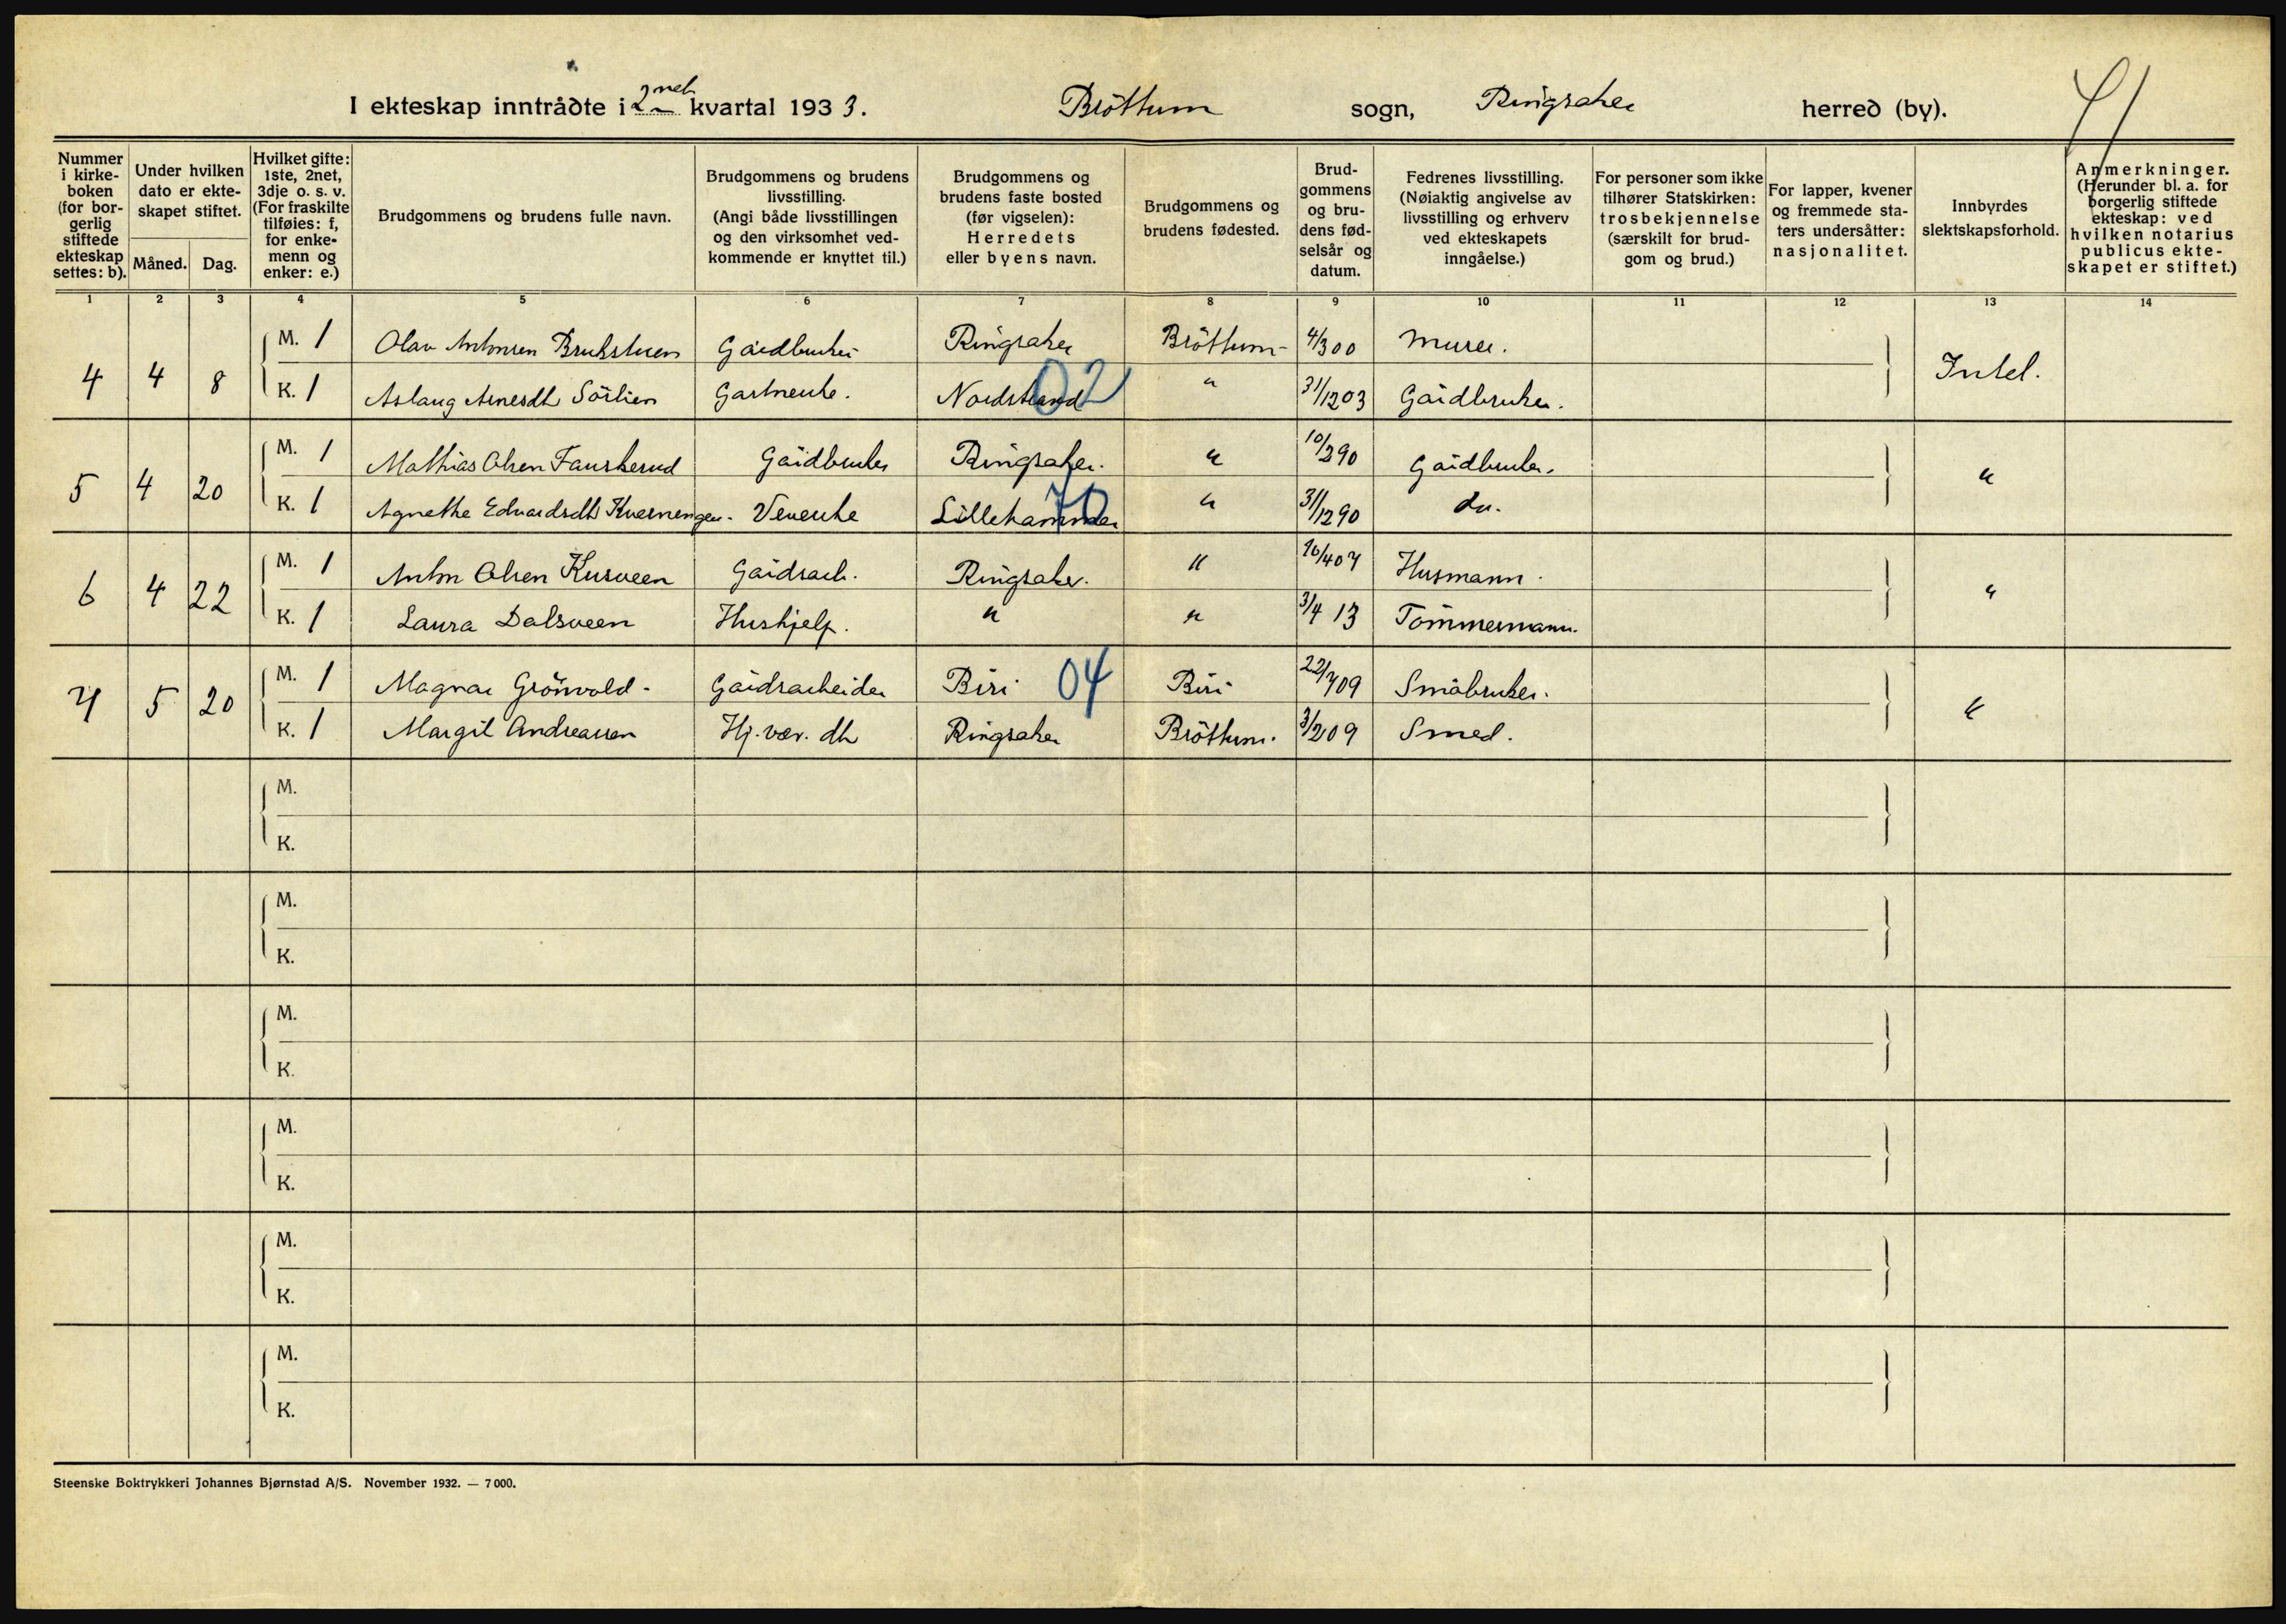 I ekteskap inntrådte i 2net kvartal 1933. Bröttum sogn, Ringsaker herred (by).
Nummer i kirkeboken (for borgerlig stiftede ekteskap settes: b).
Under hvilken dato er ekteskapet stiftet.
Måned. Dag.
Hvilket gifte: 1ste, 2net, 3dje o. s. v. (For fraskilte tilføies: f, for enkemenn og enker: e.)
Brudgommens og brudens fulle navn.
Brudgommens og brudens livsstilling. (Angi både livsstillingen og den virksomhet vedkommende er knyttet til.)
Brudgommens og brudens faste bosted (før vigselen): Herredets eller byens navn.
Brudgommens og brudens fødested.
Brudgommens og brudens fødselsår og datum.
Fedrenes livsstilling. (Nøiaktig angivelse av livsstilling og erhverv ved ekteskapets inngåelse.)
For personer som ikke tilhører Statskirken: trosbekjennelse (særskilt for brudgom og brud.)
For lapper, kvener og fremmede staters undersåtter: nasjonalitet.
Innbyrdes slektskapsforhold.
Anmerkninger. (Herunder bl. a. for borgerlig stiftede ekteskap: ved hvilken notarius publicus ekteskapet er stiftet.)
1 2 3 4 5 6 7 8 9 10 11 12 13 14
4 4 8 M. 1 Olav Antonsen Brukstuen Gårdbruker Ringsaker Bröttum 4/3 00 Murer. Intet.
K. 1 Aslaug Arnesdt Sörlien Gartnerske. Nordstrand 02 " 31/12 03 Gårdbruker.
5 4 20 M. 1 Mathias Olsen Fauskerud Gårdbruker Ringsaker. " 10/2 90 Gårdbruker. "
K. 1 Agnethe Edvardsdt Kvernengen. Veverske Lillehammer 70 " 31/12 90 do.
6 4 22 M. 1 Anton Olsen Kusveen Gårdsarb. Ringsaker. " 16/4 07 Husmann. "
K. 1 Laura Dalsveen Hushjelp. " " 3/4 13 Tömmermann.
7 5 20 M. 1 Magnar Grönvold Gårdsarbeider Biri 04 Biri 22/7 09 Småbruker. "
K. 1 Margit Andreassen Hj. vær. dt Ringsaker Bröttum. 3/2 09 Smed.
M.
K.
M.
K.
M.
K.
M.
K.
M.
K.
M.
K.
Steenske Boktrykkeri Johannes Bjørnstad A/S. November 1932. — 7000.